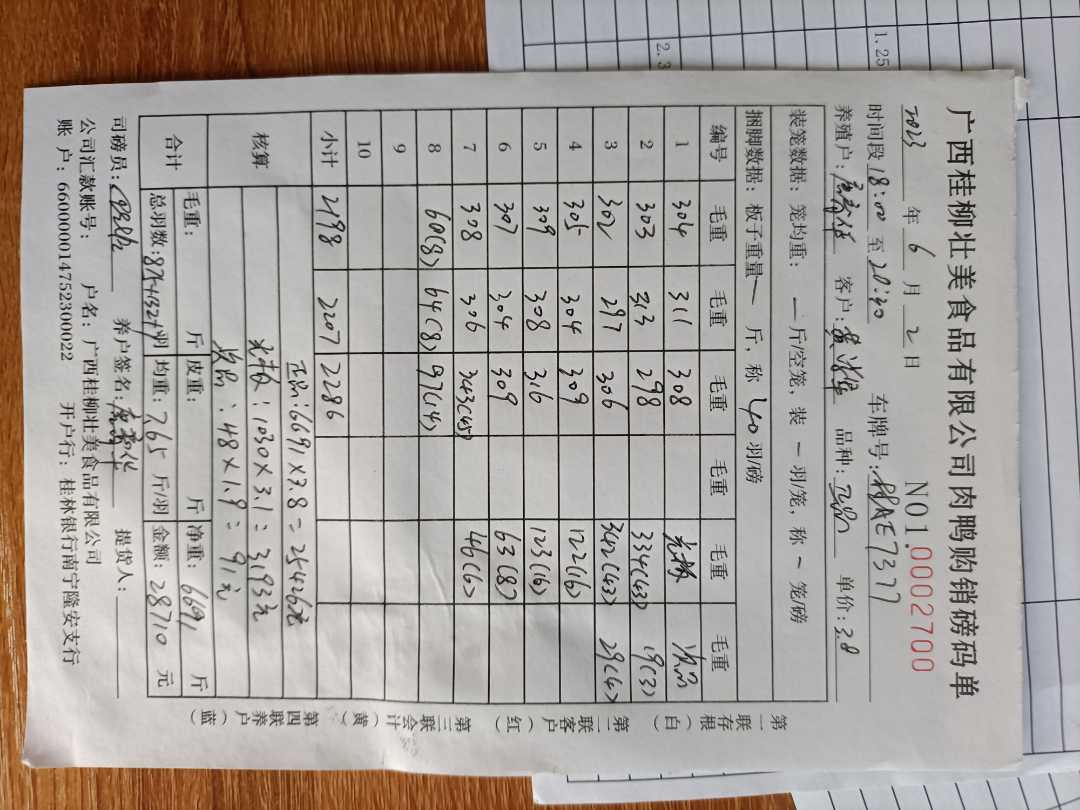 广西桂柳壮美食品有限公司肉鸭购销磅码单
NO1.0002700
2023 年 6 月 2 日
时间段 18:00 至 20:20 车牌号:桂AE7377
养殖户: 客户: 品种:正品 单价:3.8
装笼数据: 笼均重: — 斤/空笼, 装 — 羽/笼, 称 — 笼/磅
捆脚数据: 板子重量 — 斤, 称 40 羽/磅
编号 毛重 毛重 毛重 毛重 毛重 毛重
1 304 311 308 光板 次品
2 303 313 298 334(43) 19(3)
3 302 297 306 342(43) 29(4)
4 305 304 309 122(16)
5 309 308 316 123(16)
6 307 304 309 63(8)
7 308 306 343(45) 46(6)
8 60(8) 64(8) 97(14)
9
10
小计 2198 2207 2286
核算 正品:6691×3.8=25426元
光板:1030×3.1=3193元
次品:48×1.9=91元
合计 毛重: 斤 皮重: 斤 净重: 6691 斤
总羽数:875+132+7羽 均重:7.65 斤/羽 金额: 28710 元
司磅员: 养户签名: 提货人:
公司汇款账号: 户名:广西桂柳壮美食品有限公司
账 户:660000014752300022 开户行:桂林银行南宁隆安支行
第一联存根(白) 第二联客户(红) 第三联会计(黄) 第四联养户(蓝)
1.25
2.3